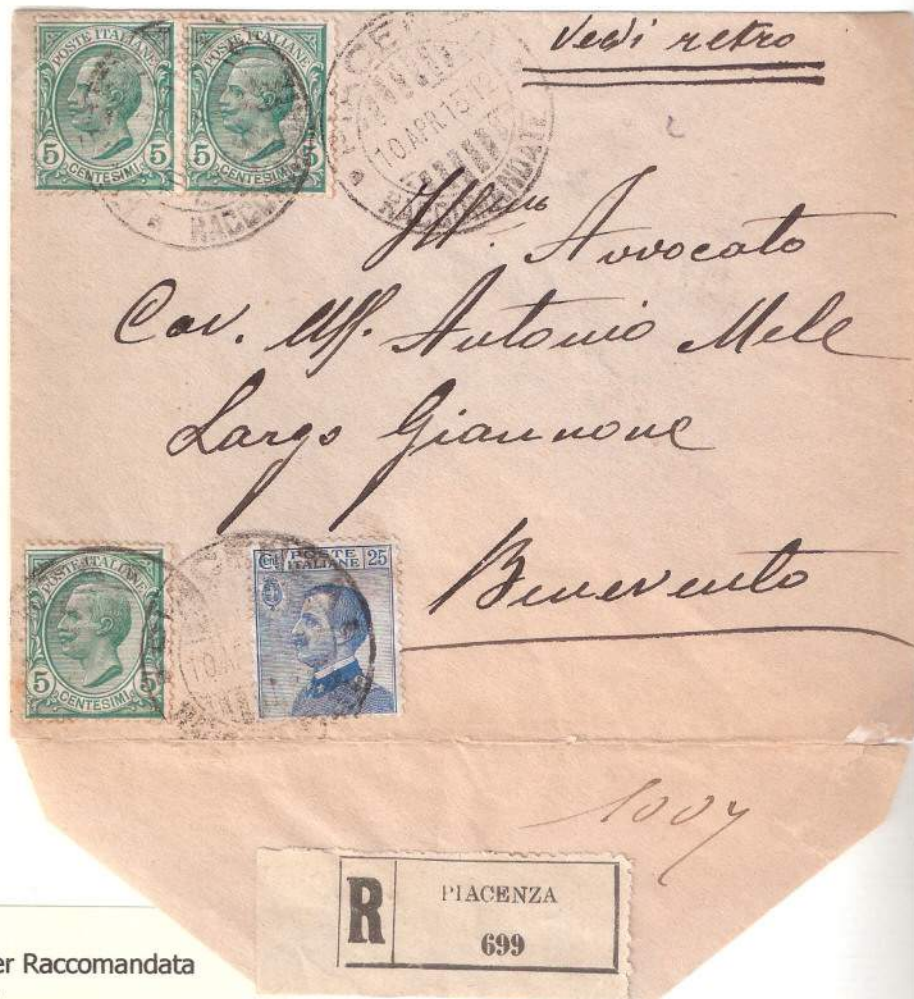 Vedi retro
POSTE ITALIANE
5 CENTESIMI 5
POSTE ITALIANE
5 CENTESIMI 5
10 APR 15 12
RACCOMANDATE
Ill.mo Avvocato
Cav. Uff. Antonio Mele
Largo Giannone
Benevento
POSTE ITALIANE
5 CENTESIMI 5
10 AP
Cent. POSTE ITALIANE 25
1007
R PIACENZA
699
er Raccomandata